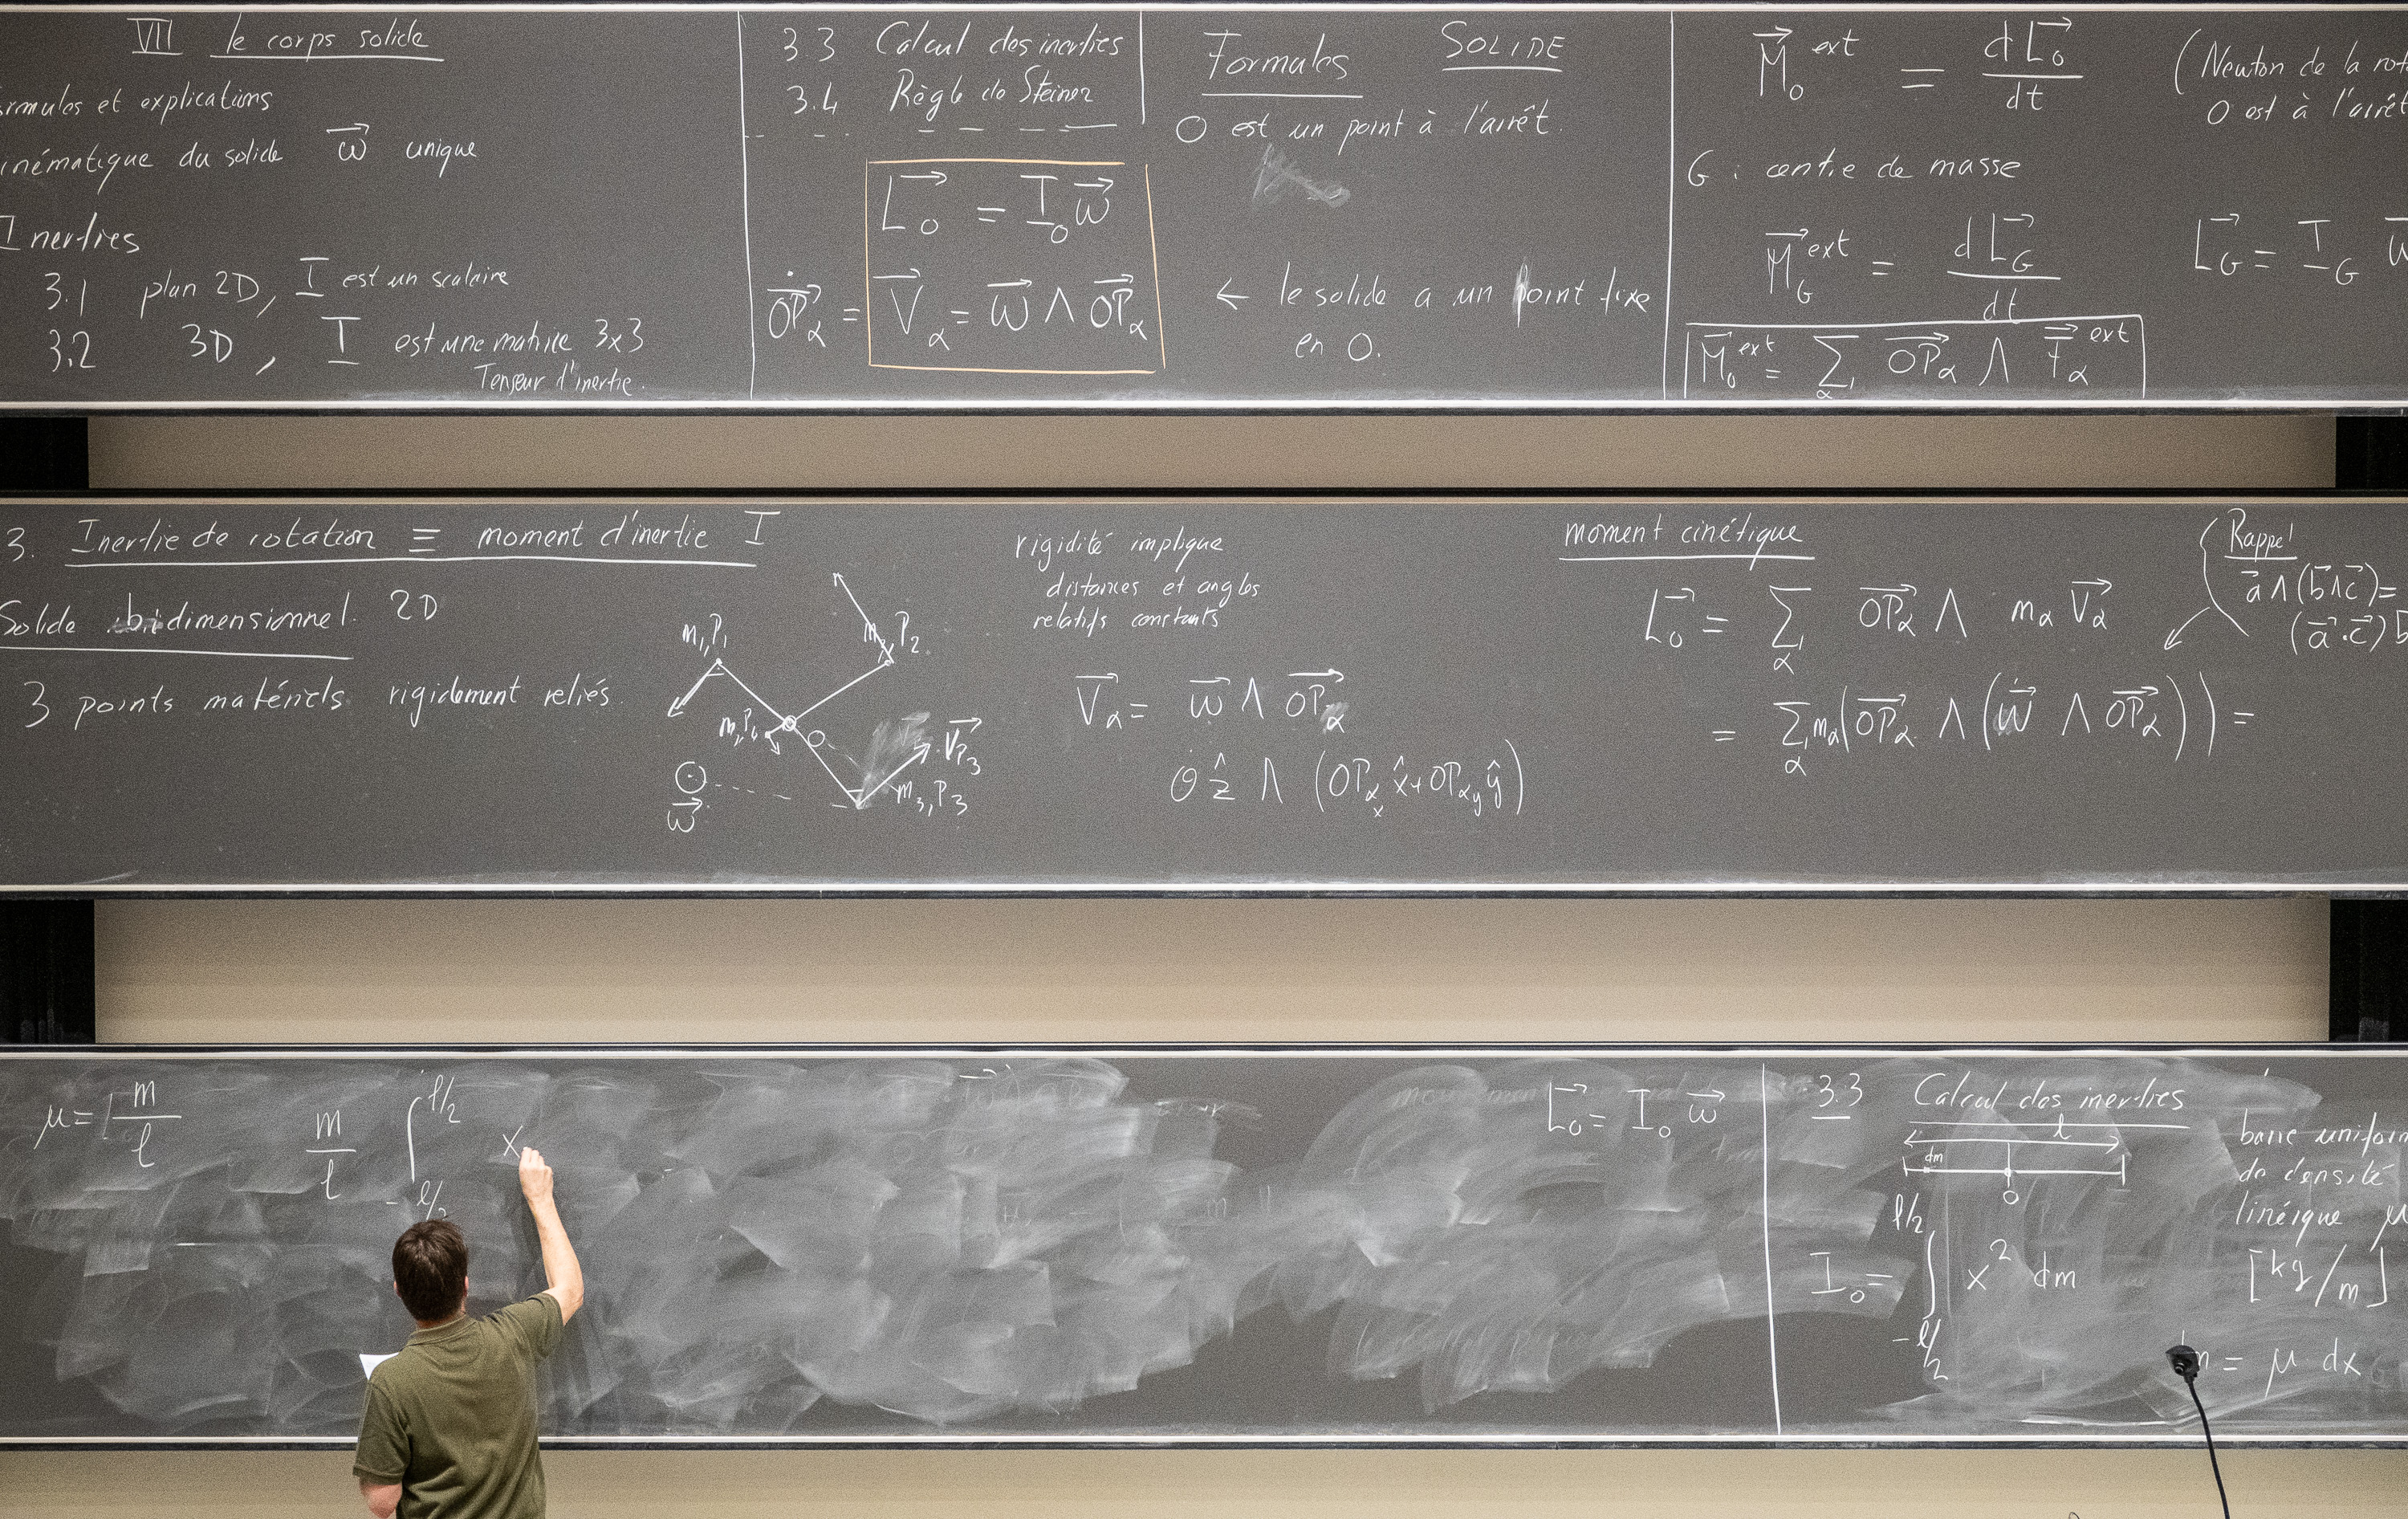 VII le corps solide
formules et explications
cinématique du solide ω⃗ unique
Inerties
3.1 plan 2D, I est un scalaire
3.2 3D, I est une matrice 3x3
Tenseur d'inertie.
3.3 Calcul des inerties
3.4 Règle de Steiner
L⃗_O = I_O ω⃗
OP⃗_α = V⃗_α = ω⃗ ∧ OP⃗_α
Formules SOLIDE
O est un point à l'arrêt.
← le solide a un point fixe
en O.
M⃗_O^ext = dL⃗_O/dt
(Newton de la
O est à l'arrêt
G : centre de masse
M⃗_G^ext = dL⃗_G/dt
L⃗_G = I_G ω⃗
M⃗_O^ext = Σ_α OP⃗_α ∧ F⃗_α^ext
3. Inertie de rotation ≡ moment d'inertie I
Solide bidimensionnel. 2D
3 points matériels rigidement reliés.
m, P₁
P₂
m, P₄
O
V⃗_P₃
m₃, P₃
ω⃗
rigidité implique
distances et angles
relatifs constants
V⃗_α = ω⃗ ∧ OP⃗_α
θ̇ ẑ ∧ (OP_αx x̂ + OP_αy ŷ)
moment cinétique
L⃗_O = Σ_α OP⃗_α ∧ m_α V⃗_α
= Σ_α m_α (OP⃗_α ∧ (ω⃗ ∧ OP⃗_α)) =
Rappel
a⃗ ∧ (b⃗ ∧ c⃗) =
(a⃗ · c⃗) b
μ = m/l
m/l ∫_{-l/2}^{l/2} x
L⃗_O = I_O ω⃗
3.3 Calcul des inerties
l
dm
O
barre uniform
de densité
linéique μ
I_O = ∫_{-l/2}^{l/2} x² dm
[kg/m]
= μ dx